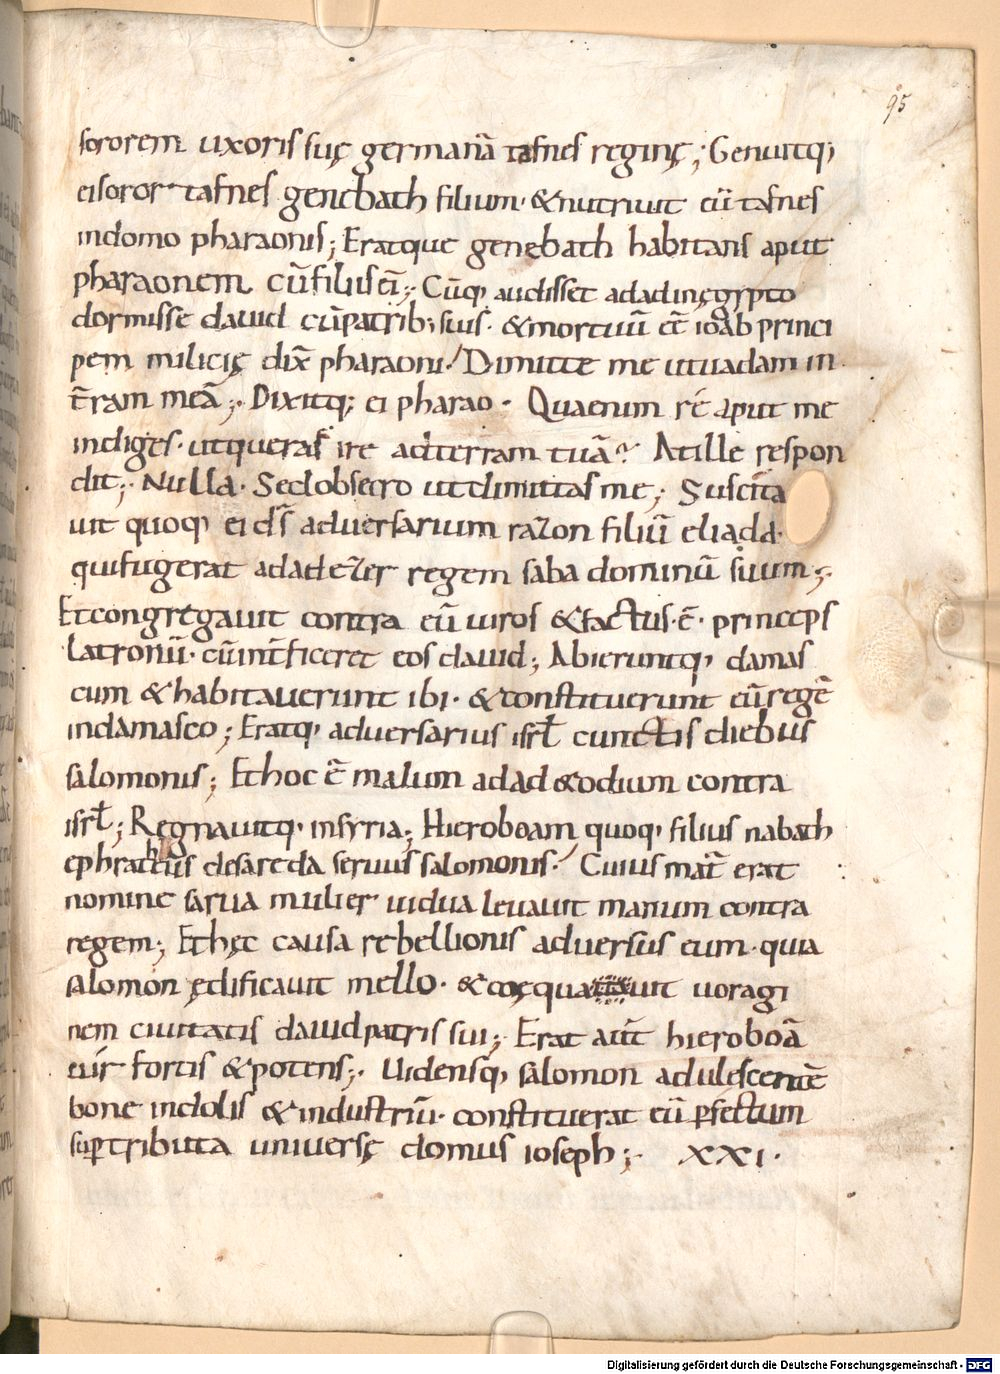 95
sororem uxoris suę germanā tafnes reginę; Genuitq;
ei soror tafnes genebath filium· & nutriuit eū tafnes
in domo pharaonis; Eratque genebath habitans aput
pharaonem cū filiis ei;· Cūq; audisset adad in ęgypto
dormisse dauid cū patrib; suis· & mortuū eē ioab princi
pem milicię dix̄ pharaoni·/ Dimitte me ut uadam in
t̄ram meā;· Dixitq; ei pharao· Quaenim rē aput me
indiges· ut queras ire ad terram tuā? At ille respon
dit;· Nulla· Sed obsecro ut dimittas me; Suscita
uit quoq; ei d̄s aduersarium razon filiū eliada·
qui fugerat adadezer regem saba dominū suum;·
Et congregauit contra eū uiros & factus·ē· princeps
latronū· cū int̄ficeret eos dauid; Abieruntq; damas
cum & habitauerunt ibi· & constituerunt eū regē
in damasco; Eratq; aduersarius isrł cunctis diebus
salomonis; Et hoc ē malum adad & odium contra
isrł; Regnauitq; in syria; Hieroboam quoq; filius nabath
ephratheus de sareda seruus salomonis·/ Cuius mat̄ erat
nomine sarua mulier uidua leuauit manum contra
regem; Et hęc causa rebellionis aduersus eum· quia
salomon ędificauit mello· & coęquauit uoragi
nem ciuitatis dauid patris sui; Erat aūt hieroboā
uir fortis & potens;· Uidensq; salomon adulescentē
bone indolis & industriū· constituerat eū p̄fectum
sup̄ tributa uniuersę domus ioseph;· XXI·
Digitalisierung gefördert durch die Deutsche Forschungsgemeinschaft - DFG